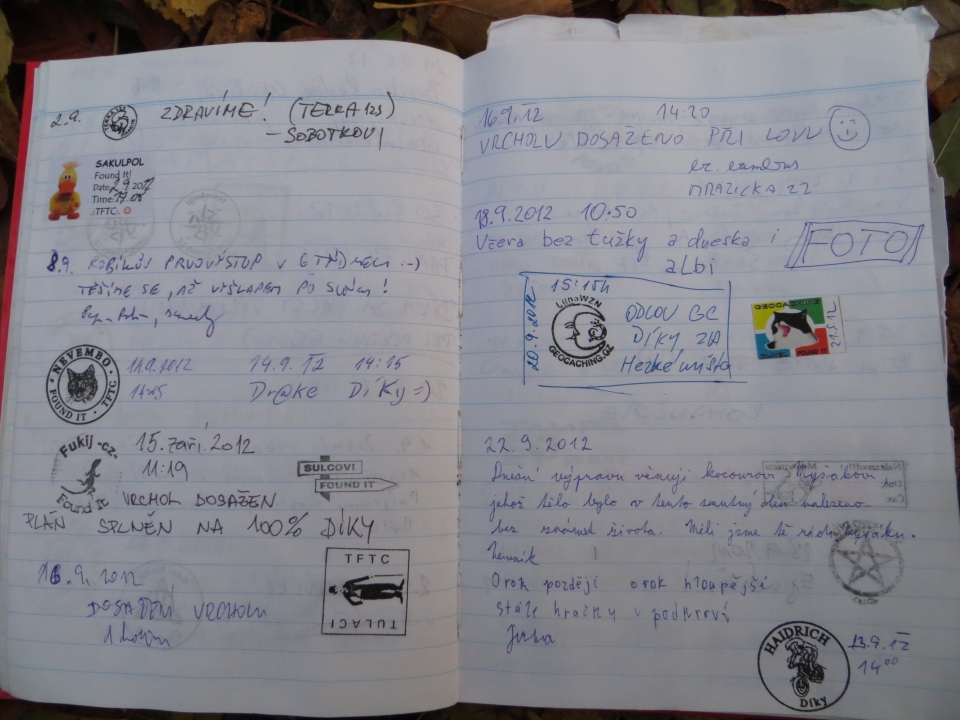 2.9.
ZDRAVÍME! (TERKA123)
– SOBOTKOVI
SAKULPOL
Found It!
Date: 2.9.2012
Time:
TFTC:
8.9.
PRVOVÝSTUP V
TĚŠÍME SE, AŽ
NEVEMBO
FOUND IT • TFTC
11.9.2012
14.9.12 14:15
Dr@ke Díky =)
Fukij -cz-
Found It
15. září 2012
11:19
VRCHOL DOSAŽEN
SULCOVI
FOUND IT
PLÁN SPLNĚN NA 100% DÍKY
16.9.2012
DOSAŽENÍ VRCHOLU
TFTC
TULACI
16.9.12 14:20
VRCHOLU DOSAŽENO PŘI LOVU
18.9.2012 10:50
Včera bez tužky a dneska i FOTO
albi
15:15h
20.9.2012
LunaWZN
GEOCACHING.CZ
ODLOV GC
DÍKY ZA
Hezké místo
21.5.12
22.9.2012
Dnešní výpravu věnuji kocourovi Myšákovi
jehož tělo bylo v tento smutný den nalezeno
bez známek života. Měli jsme tě rádi Myšáku.
O rok později o rok hloupější
stále hračky v podkroví
HAIDRICH
Díky
13.9.12
14⁰⁰